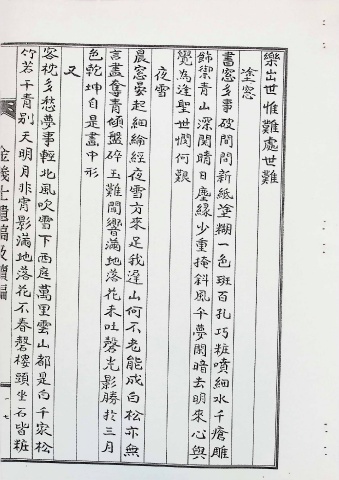 樂出世惟難處世難
塗窓
書窓多事破間間新紙塗糊一色班百孔巧粧噴細水千瘡雕
飾禦青山深関晴日塵緣少重掩斜風午夢閑暗去明來心與
覺為逢聖世憫何艱
夜雪
晨窓晏起細論經夜雪方來足我逢山何不老能成白松亦無
言盡奪青傾盤碎玉難聞響滿地落花未吐馨光影勝於三月
色乾坤自是畫中形
又
客枕多愁夢事輕北風吹雪下西庭萬里雲山都是白千家松
竹若干青別天明月非宵影滿地落花不春馨樓頭坐石皆粧
金義士遺稿散續編
一七